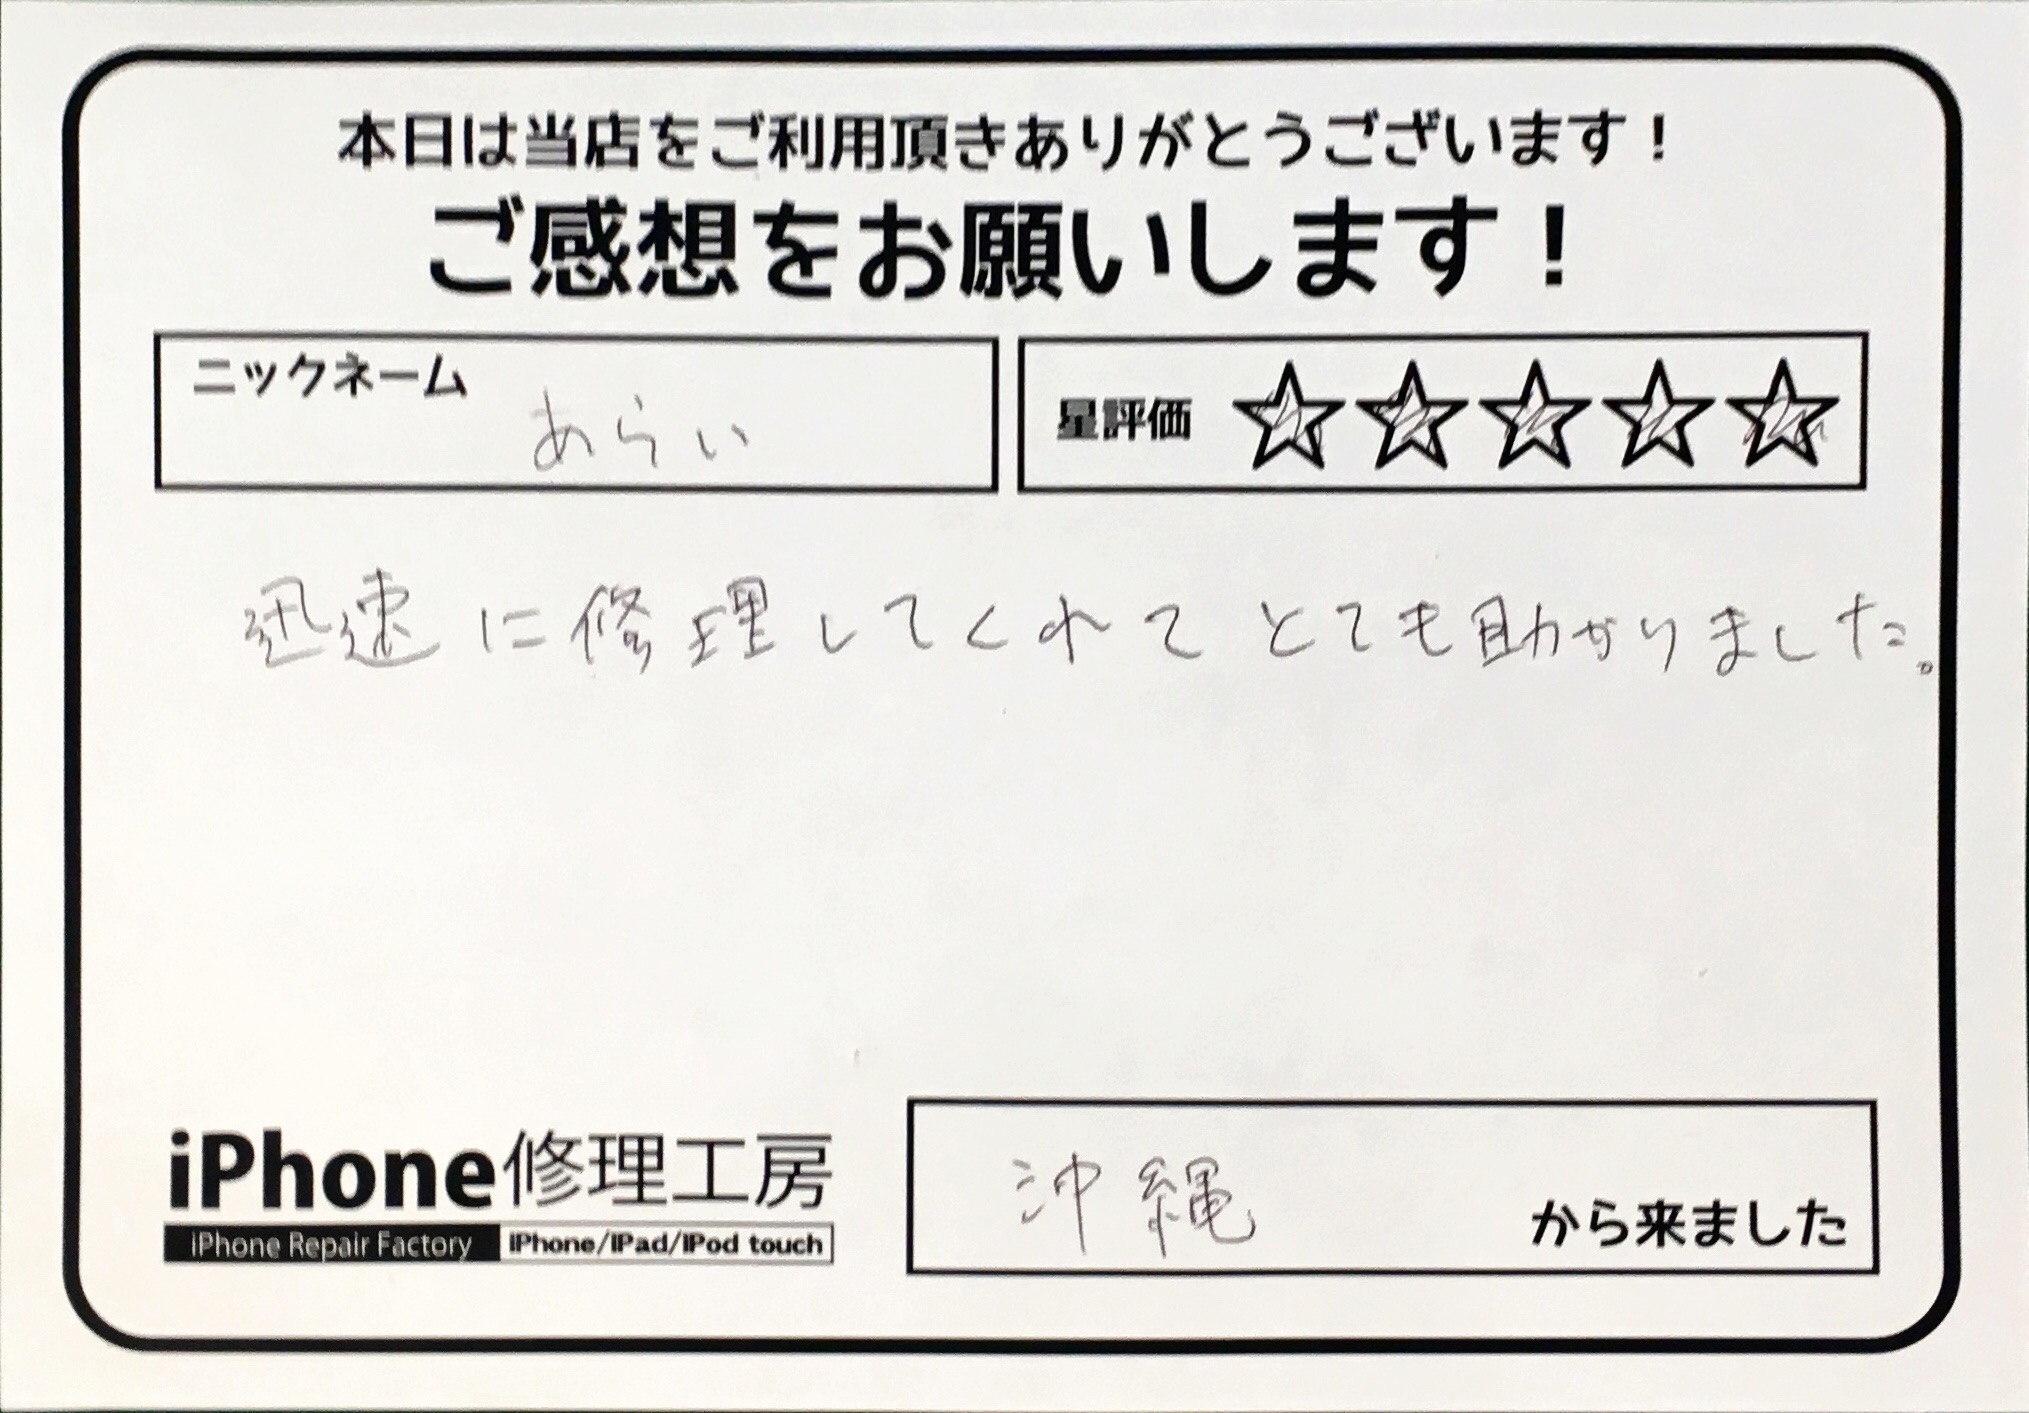 本日は当店をご利用頂きありがとうございます！
ご感想をお願いします！
ニックネーム
あらい
星評価 ☆☆☆☆☆
迅速に修理してくれてとても助かりました。
iPhone修理工房
iPhone Repair Factory iPhone/iPad/iPod touch
沖縄
から来ました